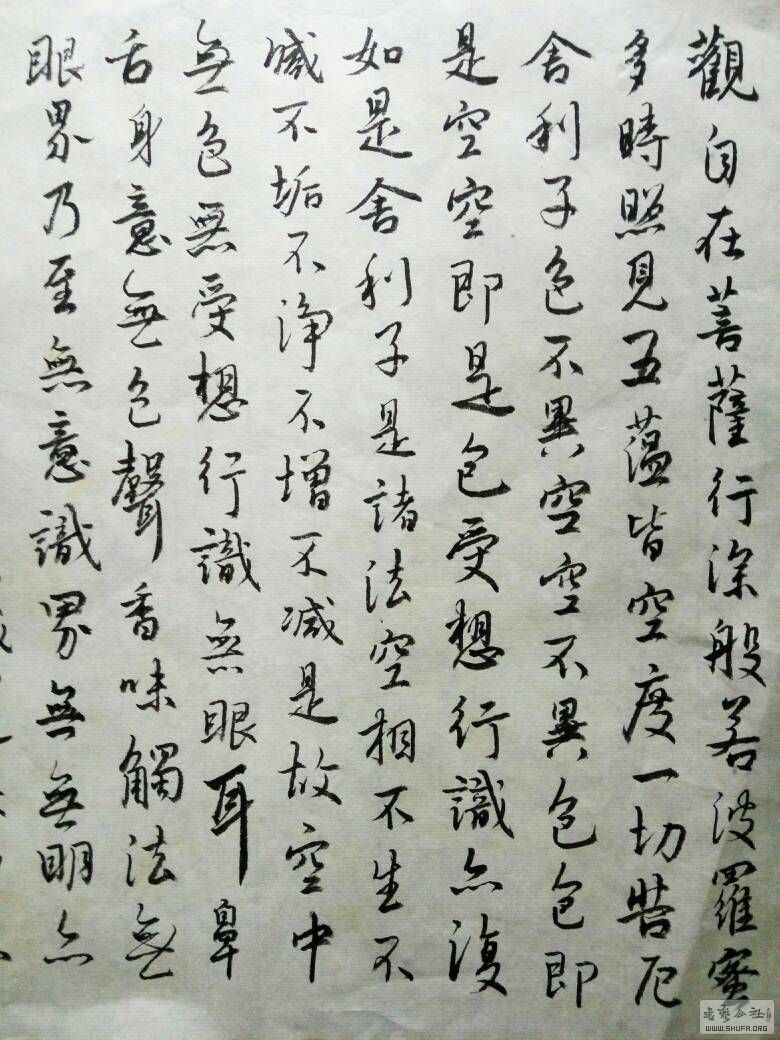 觀自在菩薩行深般若波羅蜜
多時照見五蘊皆空度一切苦厄
舍利子色不異空空不異色色即
是空空即是色受想行識亦復
如是舍利子是諸法空相不生不
滅不垢不淨不增不減是故空中
無色無受想行識無眼耳鼻
舌身意無色聲香味觸法無
眼界乃至無意識界無無明亦
書藝公社
WWW.SHUFA.ORG